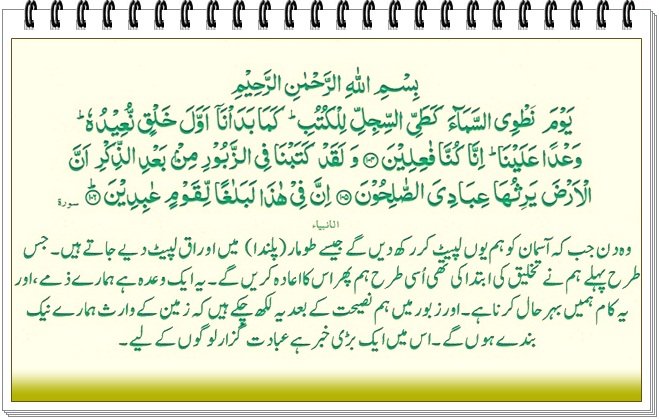 بِسْمِ اللهِ الرَّحْمٰنِ الرَّحِيْمِ
يَوْمَ نَطْوِى السَّمَآءَ كَطَيِّ السِّجِلِّ لِلْكُتُبِ ؕ كَمَا بَدَاْنَآ اَوَّلَ خَلْقٍ نُّعِيْدُهٗ ؕ
وَعْدًا عَلَيْنَا ؕ اِنَّا كُنَّا فٰعِلِيْنَ ﴿۱۰۴﴾ وَ لَقَدْ كَتَبْنَا فِى الزَّبُوْرِ مِنْۢ بَعْدِ الذِّكْرِ اَنَّ
الْاَرْضَ يَرِثُهَا عِبَادِىَ الصّٰلِحُوْنَ ﴿۱۰۵﴾ اِنَّ فِىْ هٰذَا لَبَلٰغًا لِّقَوْمٍ عٰبِدِيْنَ ﴿۱۰۶﴾ؕ سورة
الانبیاء
وہ دن جب کہ آسمان کو ہم یوں لپیٹ کر رکھ دیں گے جیسے طومار (پلندا) میں اوراق لپیٹ دیے جاتے ہیں۔ جس
طرح پہلے ہم نے تخلیق کی ابتدا کی تھی اُسی طرح ہم پھر اس کا اعادہ کریں گے۔ یہ ایک وعدہ ہے ہمارے ذمے، اور
یہ کام ہمیں بہرحال کرنا ہے۔ اور زبور میں ہم نصیحت کے بعد یہ لکھ چکے ہیں کہ زمین کے وارث ہمارے نیک
بندے ہوں گے۔ اس میں ایک بڑی خبر ہے عبادت گزار لوگوں کے لیے۔